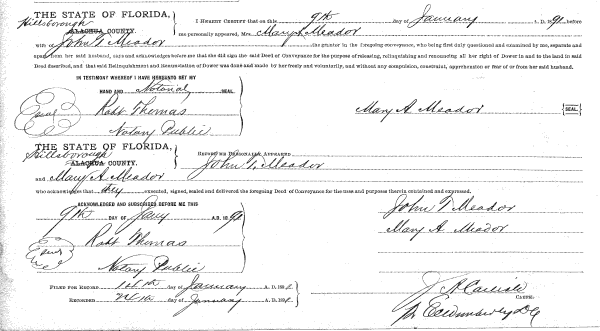 THE STATE OF FLORIDA,
Hillsborough
ALACHUA COUNTY.
I HEREBY CERTIFY that on this 9th day of January A. D. 91, before
me personally appeared, Mrs. Mary A. Meador
with John T. Meador the grantor in the foregoing conveyance, who being first duly questioned and examined by me, separate and
apart from her said husband, says and acknowledges before me that she did sign the said Deed of Conveyance for the purpose of releasing, relinquishing and renouncing all her right of Dower in and to the land in said
Deed described, and that said Relinquishment and Renunciation of Dower was done and made by her freely and voluntarily, and without any compulsion, constraint, apprehension or fear of or from her said husband.
IN TESTIMONY WHEREOF I HAVE HEREUNTO SET MY
HAND AND Notarial SEAL
Robt Thomas
Notary Public
Mary A Meador SEAL
THE STATE OF FLORIDA,
Hillsborough
ALACHUA COUNTY.
BEFORE ME PERSONALLY APPEARED John T. Meador
and Mary A Meador
who acknowledge that they executed, signed, sealed and delivered the foregoing Deed of Conveyance for the uses and purposes therein contained and expressed.
ACKNOWLEDGED AND SUBSCRIBED BEFORE ME THIS
9th DAY OF Jany A.D. 1891
Robt Thomas
Notary Public
John T Meador
Mary A Meador
FILED FOR RECORD day of January A. D. 189
RECORDED 24th day of January A. D. 189
J A Carlisle
CLERK.